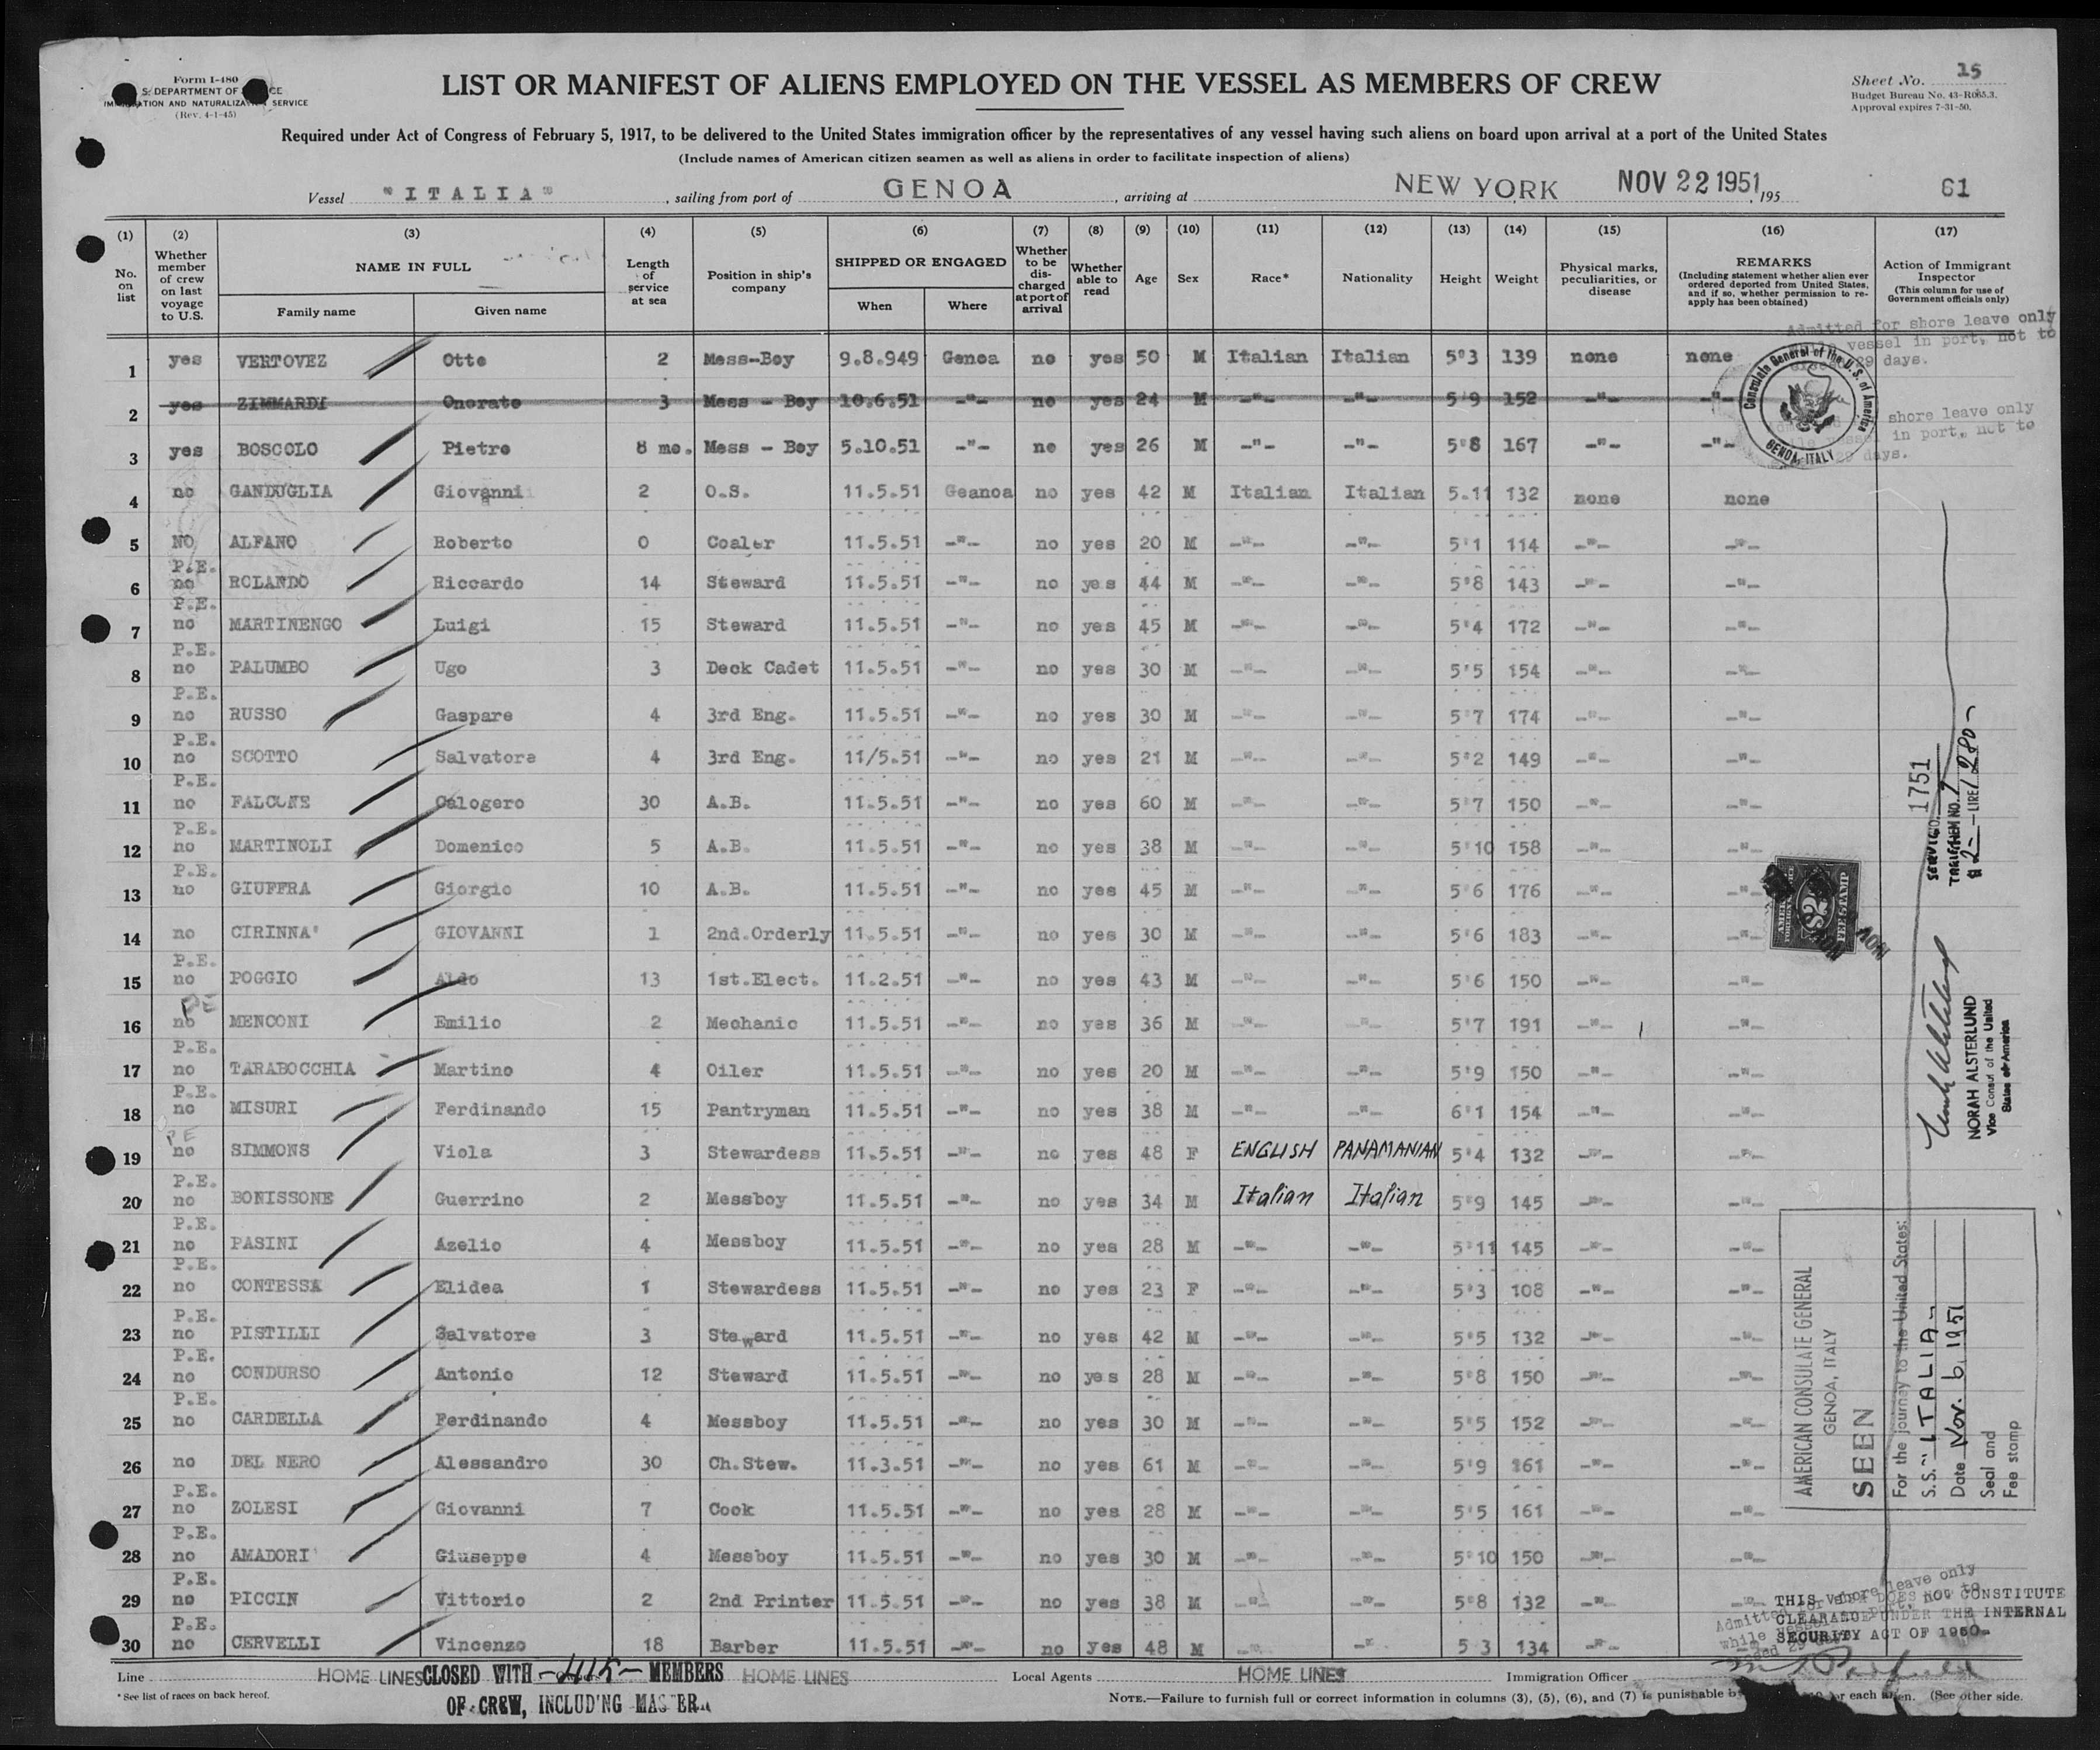 Form I-480
U. S. DEPARTMENT OF JUSTICE
IMMIGRATION AND NATURALIZATION SERVICE
(Rev. 4-1-45)
LIST OR MANIFEST OF ALIENS EMPLOYED ON THE VESSEL AS MEMBERS OF CREW
Sheet No. 15
Budget Bureau No. 43-R065.3.
Approval expires 7-31-50.
Required under Act of Congress of February 5, 1917, to be delivered to the United States immigration officer by the representatives of any vessel having such aliens on board upon arrival at a port of the United States
(Include names of American citizen seamen as well as aliens in order to facilitate inspection of aliens)
Vessel "ITALIA", sailing from port of GENOA, arriving at NEW YORK NOV 22 1951, 195
61
(1) (2) (3) (4) (5) (6) (7) (8) (9) (10) (11) (12) (13) (14) (15) (16) (17)
No. on list
Whether member of crew on last voyage to U.S.
NAME IN FULL
Family name
Given name
Length of service at sea
Position in ship's company
SHIPPED OR ENGAGED
When
Where
Whether to be discharged at port of arrival
Whether able to read
Age
Sex
Race*
Nationality
Height
Weight
Physical marks, peculiarities, or disease
REMARKS
(Including statement whether alien ever ordered deported from United States, and if so, whether permission to reapply has been obtained)
Action of Immigrant Inspector
(This column for use of Government officials only)
Admitted for shore leave only
vessel in port, not to
29 days.
1 yes VERTOVEZ Otto 2 Mess-Boy 9.8.949 Genoa no yes 50 M Italian Italian 5'3 139 none none
2 yes ZIMMARDI Onorato 3 Mess - Boy 10.6.51 -"- no yes 24 M -"- -"- 5'9 152 -"- -"-
shore leave only
in port, not to
days.
3 yes BOSCOLO Pietro 8 mo. Mess - Boy 5.10.51 -"- no yes 26 M -"- -"- 5'8 167 -"- -"-
4 no GANDUGLIA Giovanni 2 O.S. 11.5.51 Geanoa no yes 42 M Italian Italian 5.11 132 none none
5 NO ALFANO Roberto 0 Coaler 11.5.51 -"- no yes 20 M -"- -"- 5'1 114 -"- -"-
6 P.E. no ROLANDO Riccardo 14 Steward 11.5.51 -"- no yes 44 M -"- -"- 5'8 143 -"- -"-
7 P.E. no MARTINENGO Luigi 15 Steward 11.5.51 -"- no yes 45 M -"- -"- 5'4 172 -"- -"-
8 P.E. no PALUMBO Ugo 3 Deck Cadet 11.5.51 -"- no yes 30 M -"- -"- 5'5 154 -"- -"-
9 P.E. no RUSSO Gaspare 4 3rd Eng. 11.5.51 -"- no yes 30 M -"- -"- 5'7 174 -"- -"-
10 P.E. no SCOTTO Salvatore 4 3rd Eng. 11/5.51 -"- no yes 21 M -"- -"- 5'2 149 -"- -"-
11 P.E. no FALCONE Calogero 30 A.B. 11.5.51 -"- no yes 60 M -"- -"- 5'7 150 -"- -"-
12 P.E. no MARTINOLI Domenico 5 A.B. 11.5.51 -"- no yes 38 M -"- -"- 5'10 158 -"- -"-
13 P.E. no GIUFFRA Giorgio 10 A.B. 11.5.51 -"- no yes 45 M -"- -"- 5'6 176 -"- -"-
14 no CIRINNA' GIOVANNI 1 2nd.Orderly 11.5.51 -"- no yes 30 M -"- -"- 5'6 183 -"- -"-
15 P.E. no POGGIO Aldo 13 1st.Elect. 11.2.51 -"- no yes 43 M -"- -"- 5'6 150 -"- -"-
16 PE no MENCONI Emilio 2 Mechanic 11.5.51 -"- no yes 36 M -"- -"- 5'7 191 -"- -"-
17 P.E. no TARABOCCHIA Martino 4 Oiler 11.5.51 -"- no yes 20 M -"- -"- 5'9 150 -"- -"-
18 P.E. no MISURI Ferdinando 15 Pantryman 11.5.51 -"- no yes 38 M -"- -"- 6'1 154 -"- -"-
19 PE no SIMMONS Viola 3 Stewardess 11.5.51 -"- no yes 48 F ENGLISH PANAMANIAN 5'4 132 -"- -"-
20 P.E. no BONISSONE Guerrino 2 Messboy 11.5.51 -"- no yes 34 M Italian Italian 5'9 145 -"- -"-
21 P.E. no PASINI Azelio 4 Messboy 11.5.51 -"- no yes 28 M -"- -"- 5'11 145 -"- -"-
22 P.E. no CONTESSA Elidea 1 Stewardess 11.5.51 -"- no yes 23 F -"- -"- 5'3 108 -"- -"-
23 P.E. no PISTILLI Salvatore 3 Steward 11.5.51 -"- no yes 42 M -"- -"- 5'5 132 -"- -"-
24 P.E. no CONDURSO Antonio 12 Steward 11.5.51 -"- no yes 28 M -"- -"- 5'8 150 -"- -"-
25 P.E. no CARDELLA Ferdinando 4 Messboy 11.5.51 -"- no yes 30 M -"- -"- 5'5 152 -"- -"-
26 no DEL NERO Alessandro 30 Ch.Stew. 11.3.51 -"- no yes 61 M -"- -"- 5'9 161 -"- -"-
27 P.E. no ZOLESI Giovanni 7 Cook 11.5.51 -"- no yes 28 M -"- -"- 5'5 161 -"- -"-
28 P.E. no AMADORI' Giuseppe 4 Messboy 11.5.51 -"- no yes 30 M -"- -"- 5'10 150 -"- -"-
29 P.E. no PICCIN Vittorio 2 2nd Printer 11.5.51 -"- no yes 38 M -"- -"- 5'8 132 -"- -"-
30 P.E. no CERVELLI Vincenzo 18 Barber 11.5.51 -"- no yes 48 M -"- -"- 5 3 134 -"-
Consulate General of the U.S. of America
GENOA, ITALY
SERVICE NO. 1751
TARIFF ITEM NO. 7
$2- - LIRE 1280-
$2
FEE STAMP
NOV
NORAH ALSTERLUND
Vice Consul of the United
States of America
AMERICAN CONSULATE GENERAL
GENOA, ITALY
SEEN
For the journey to the United States:
S.S. "ITALIA"
Date Nov. 6, 1951
Seal and
Fee stamp
Admitted for shore leave only
while vessel in port, not to
exceed 29 days.
THIS VISA DOES NOT CONSTITUTE
CLEARANCE UNDER THE INTERNAL
SECURITY ACT OF 1950-
Line HOME LINES CLOSED WITH -415- MEMBERS HOME LINES Local Agents HOME LINES Immigration Officer
OF CREW, INCLUDING MASTER
* See list of races on back hereof.
NOTE.—Failure to furnish full or correct information in columns (3), (5), (6), and (7) is punishable by for each alien. (See other side.